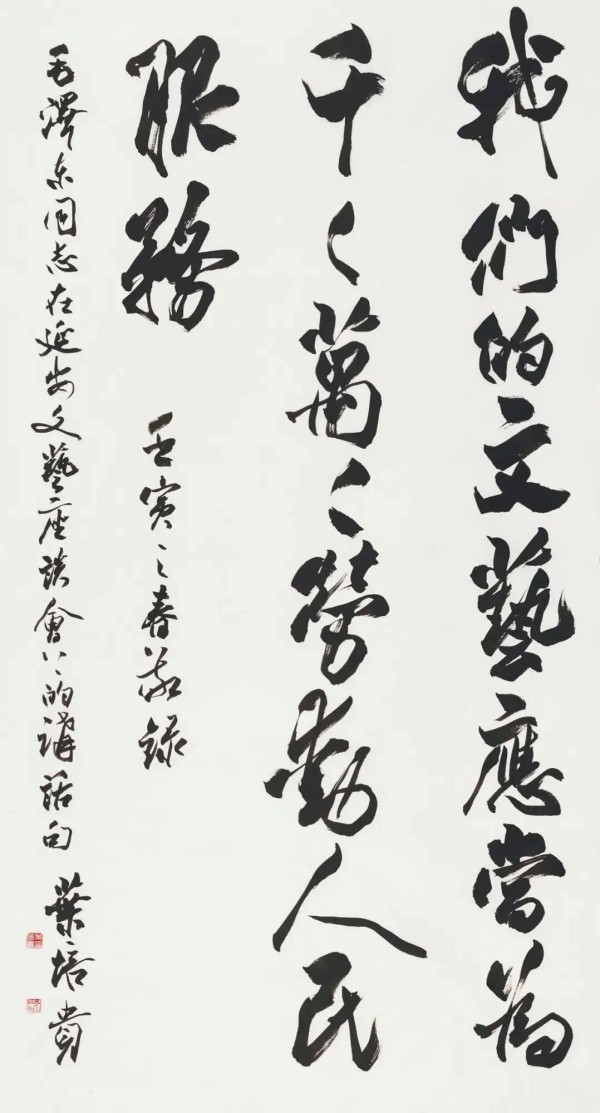 我們的文藝應當為
千〻萬〻勞動人民
服務
壬寅之春敬錄
毛澤东同志在延安文藝座談會上的講話句 葉培貴